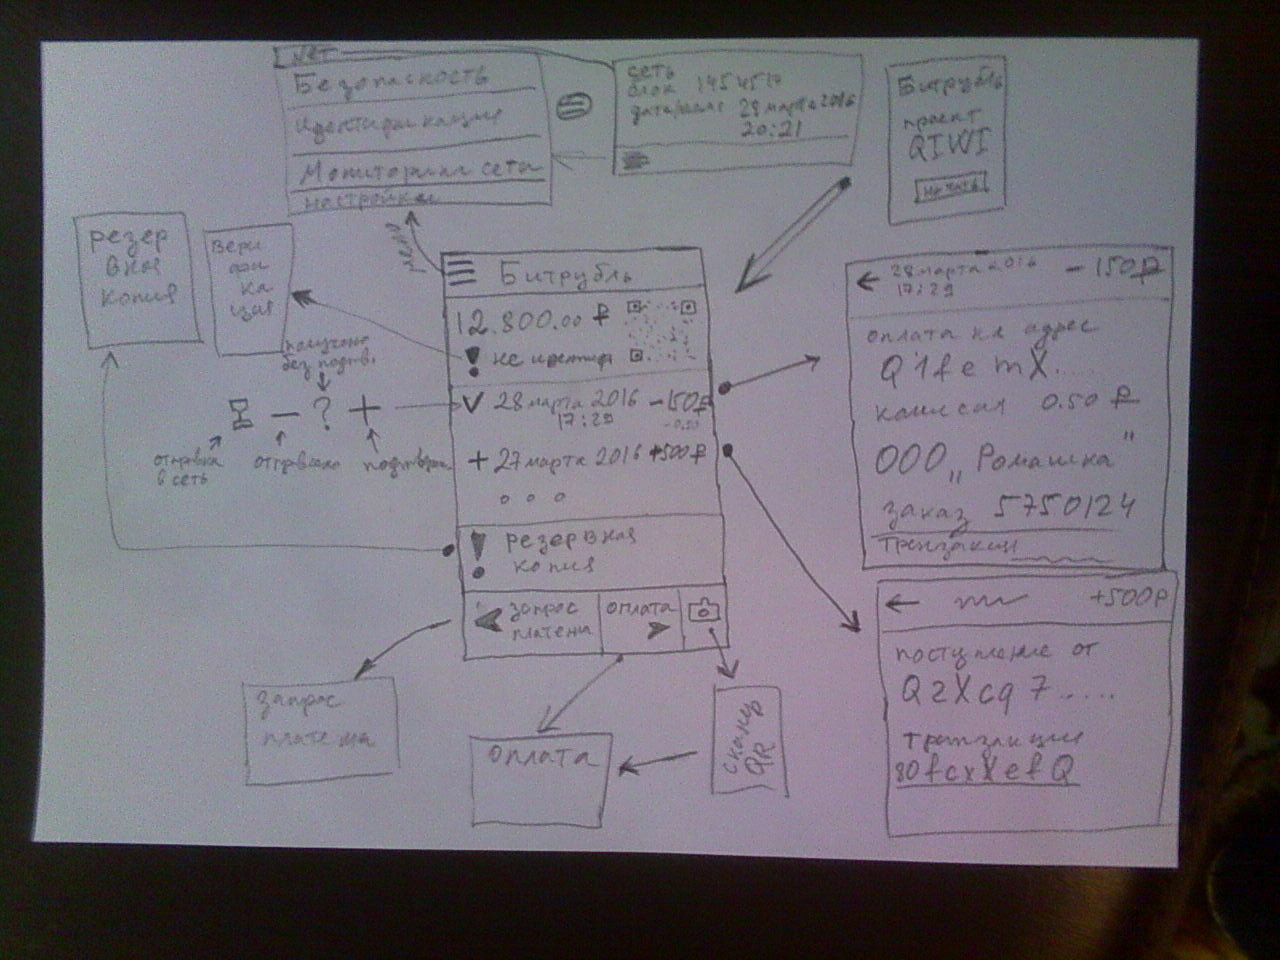 NET
Безопасность
Идентификация
Мониторинг сети
настройки
сеть
блок 1454517
дата/время 28 марта 2016
20:21
Битрубль
проект
QIWI
начать
резер
вная
копия
вери
фи
ка
ция
меню
Битрубль
12.800.00 ₽
не идентиф
28 марта 2016 -150₽
17:29 -0.50
+ 27 марта 2016 +500₽
резервная
копия
запрос
платежа
оплата
получено
без подтв.
— ? +
отправка
в сеть
отправлено
подтвержд
28 марта 2016 -150₽
17:29
оплата на адрес
Q1femX....
комиссия 0.50 ₽
ООО „Ромашка"
заказ 5750124
транзакция
+500₽
поступление от
QzXcq7.....
транзакция
80fcxXefQ
запрос
платежа
оплата
сканер
QR